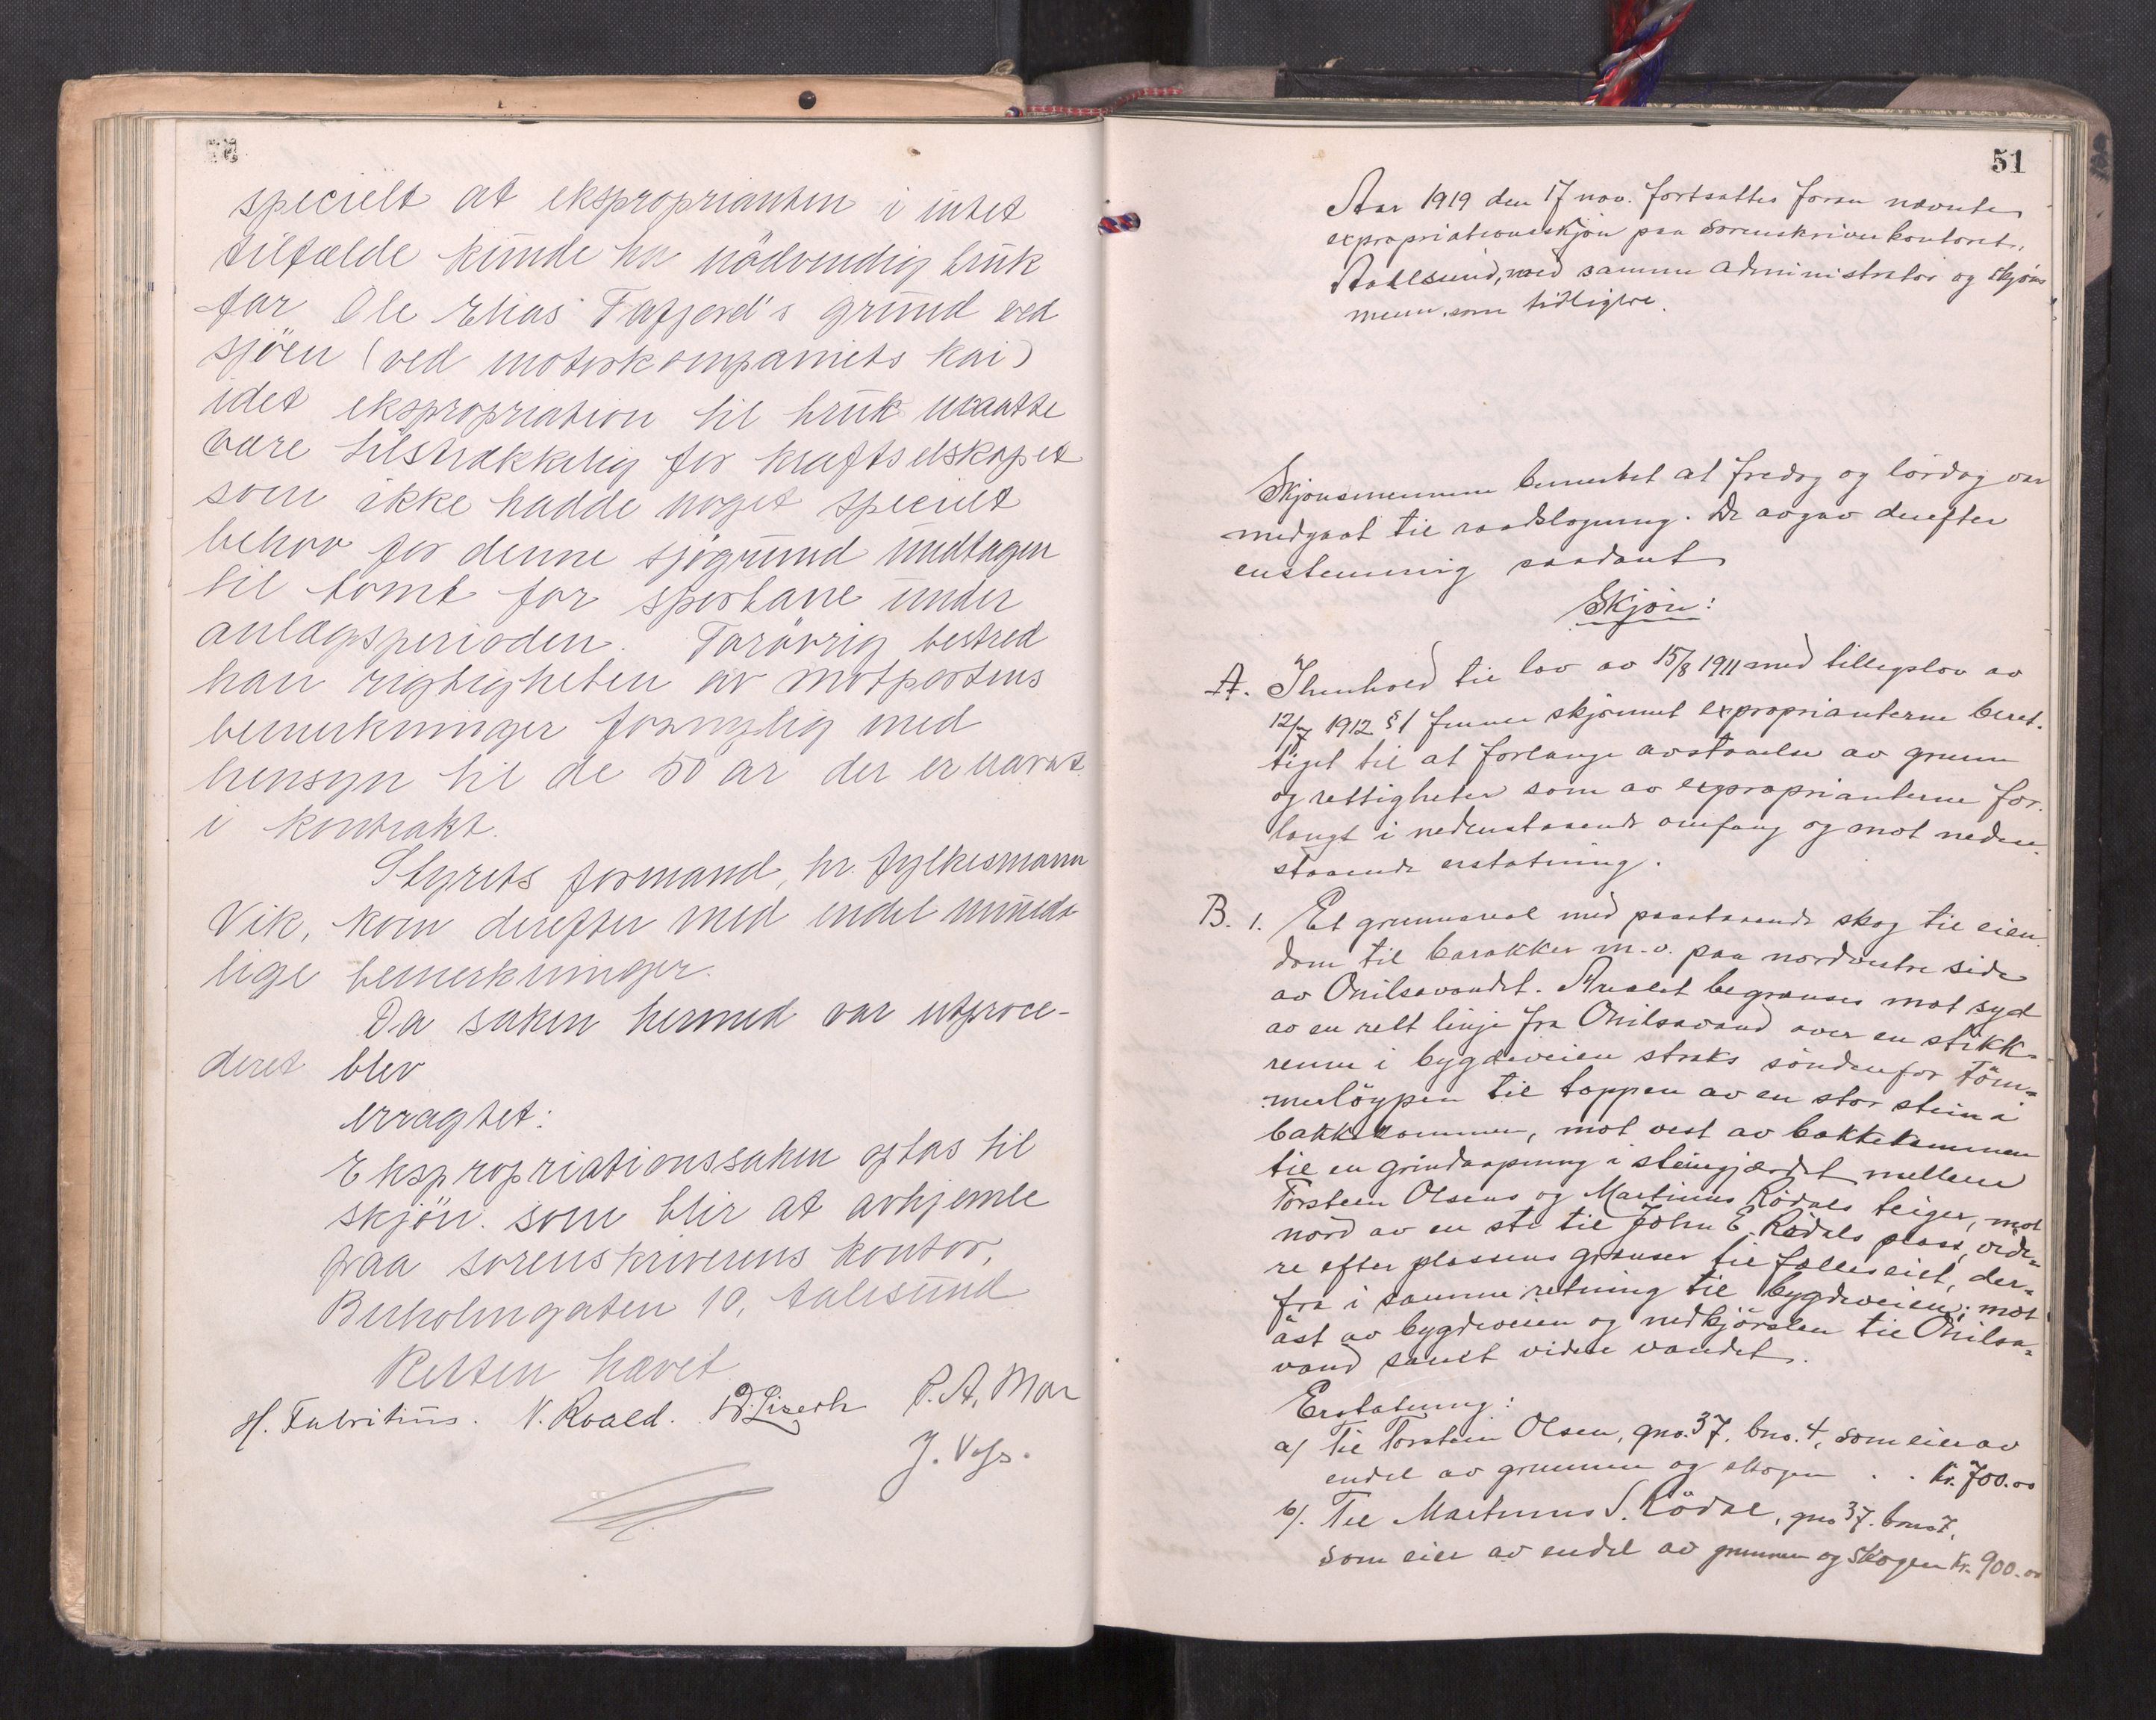 specielt at eksproprianten i intet
tilfælde kunde ha nödvendig bruk
for Ole Elias Tafjord's grund ved
sjöen (ved motorkompaniets kai)
idet ekspropriation til bruk maatte
være tilstrækkelig for kraftselskapet
som ikke hadde noget specielt
behov for denne sjögrund undtagen
til tomt for sperbane under
anlægsperioden. Forövrig bestred
han rigtigheten av motpartens
bemerkninger forsynlig med
hensyn til de 50 år der er
i kontrakt.
Styrets formand, hr. fylkesmann
Vik, kom derefter med endel mundt
lige bemerkninger.
Da saken hermed var utproce-
deret blev
eragtet:
Ekspropriationssaken optas til
skjön som blir at avhjemle
paa sorenskriverens kontor,
Buholmgaten 10, Aalesund
Retten hævet
H. Fabritius. N. Roald. P. A. Mar
J. Voss.
51
Aar 1919 den 17 nov. fortsattes foran nævnte
expropriationsskjön paa Sorenskriverkontoret,
Aalesund, med samme administrator og skjöns
menn som tidligere.
Skjönsmennene bemerket at fredag og lördag var
medgaat til raadslagning. De avgav derefter
enstemmig saadant
Skjön:
A. I henhold til lov av 15/8 1911 med tillegslov av
12/7 1912 § 1 finner skjönnet exproprianterne beret-
tiget til at forlange avstaaelse av grunn
og rettigheter som av exproprianterne for-
langt i nedenstaaende omfang og mot neden-
staaende erstatning.
B. 1. Et grunnareal med paastaaende skog til eien
dom til barakker m.v. paa nordvestre side
av Onilsavandet. Arealet begrænses mot syd
av en rett linje fra Onilsavand over en stikk-
renne i bygdeveien straks söndenfor Töm-
merlöypen til toppen av en stor stein i
bakkekammen, mot vest av bakkekammen
til en grindaapning i steingjærdet mellem
Torstein Olsens og Martinus Rödals teiger, mot
nord av en sti til John E. Rödals plass, vide-
re efter plassens grænser til fælleseiet, der-
fra i samme retning til bygdeveien; mot
öst av bygdeveien og nedkjörslen til Onilsa-
vand samt videre vandet.
Erstatning:
a/ Til Torstein Olsen, gno. 37. bno. 4, som eier av
endel av grunnen og skogen . . Kr. 700.00
b/. Til Martinus S. Rödal, gno 37. bno 7,
som eier av endel av grunnen og skogen Kr. 900.00